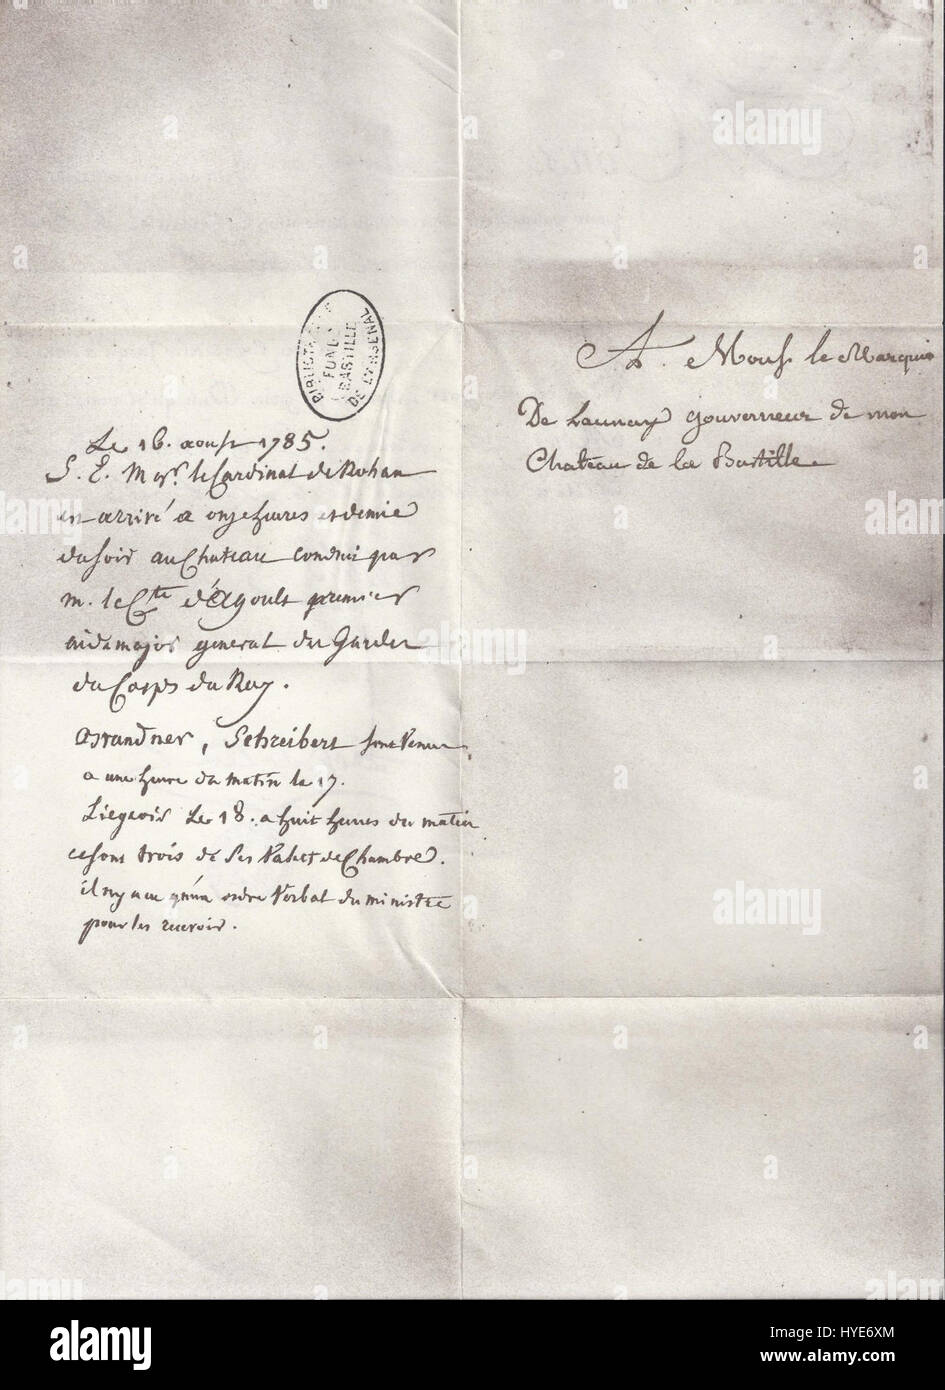 BIBLIOTHÈQUE
FONDS
BASTILLE
DE L'ARSENAL
Le 16. aoust 1785.
S. E. Mgr. le Cardinal de Rohan
est arrivé a onze heures et demie
du soir au Chateau conduit par
m. le Cte d'agoult premier
aide major general des Gardes
du Corps du Roy.
Brandner, Schreibert sont venus
a une heure du matin le 17.
Liegeois Le 18. a huit heures du matin
ce sont trois de Ses Valets de Chambre.
il n'y a eu qu'un ordre Verbal du ministre
pour les recevoir.
A. Mons. le Marquis
De Launay gouverneur de mon
Chateau de la Bastille
alamy
alamy
alamy
alamy
alamy
Image ID: HYE6XM
www.alamy.com